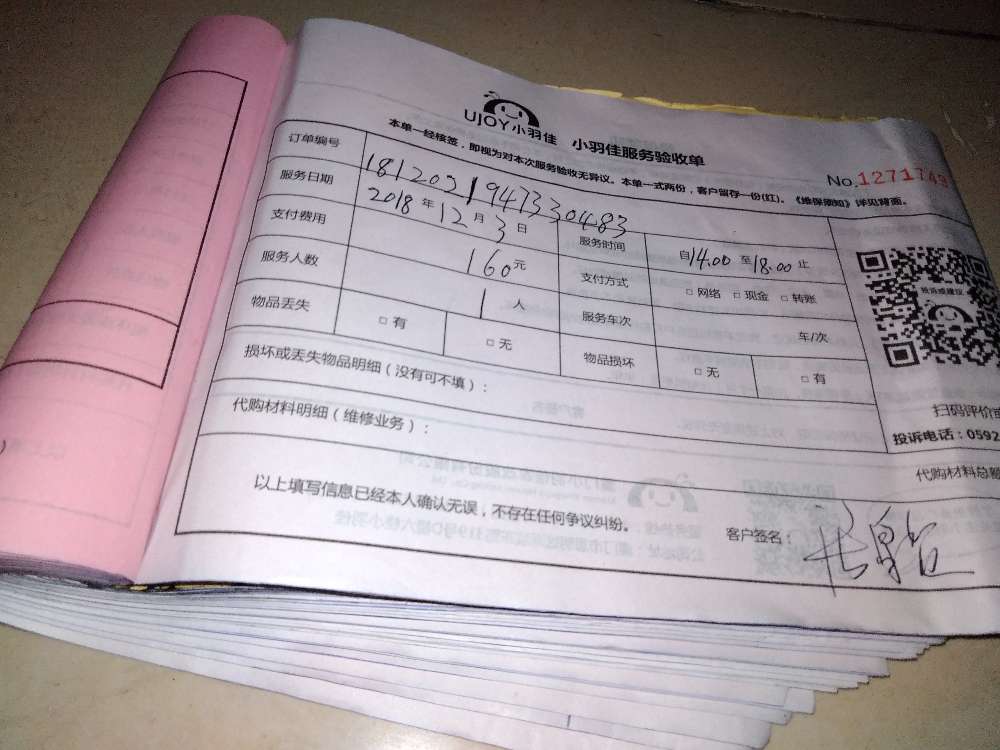 UJOY小羽佳 小羽佳服务验收单
本单一经核签，即视为对本次服务验收无异议。本单一式两份，客户留存一份(红)。《维保须知》详见背面。
No.1271749
订单编号 181203194733 0483
服务日期 2018 年 12 月 3 日 服务时间 自14.00 至18.00 止
支付费用 160元 支付方式 □ 网络 □ 现金 □ 转账
服务人数 1 人 服务车次 车/次
物品丢失 □ 有 □ 无 物品损坏 □ 无 □ 有
投诉或建议
损坏或丢失物品明细（没有可不填）：
扫码评价或
代购材料明细（维修业务）：
投诉电话：0592
代购材料总额
以上填写信息已经本人确认无误，不存在任何争议纠纷。 客户签名：